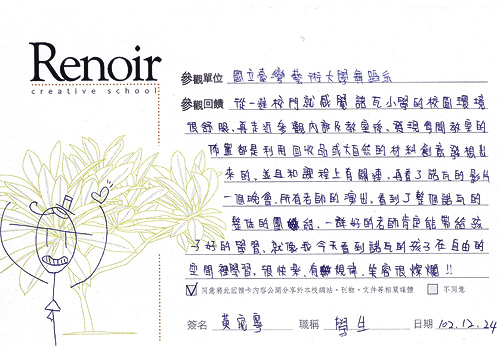 Renoir
creative school
參觀單位 國立臺灣藝術大學舞蹈系
參觀回饋 從一進校門就感覺諾瓦小學的校園環境
很舒服,再走近參觀內部及教室後,發現每間教室的
佈置都是利用回收品或大自然的材料創意發想出
來的,並且和課程上有關連,再看了諾瓦的影片
一個晚會,所有老師的演出,看到了整個諾瓦的
整体的團結,一群好的老師肯定能帶給孩
子好的學習,就像我今天看到諾瓦的孩子在自由的
空間裡學習,很快樂,有規律,笑容很燦爛!!
同意將此回饋卡內容公開分享於本校網站、刊物、文件等相關媒體 不同意
簽名 黃 職稱 學生 日期 102.12.24